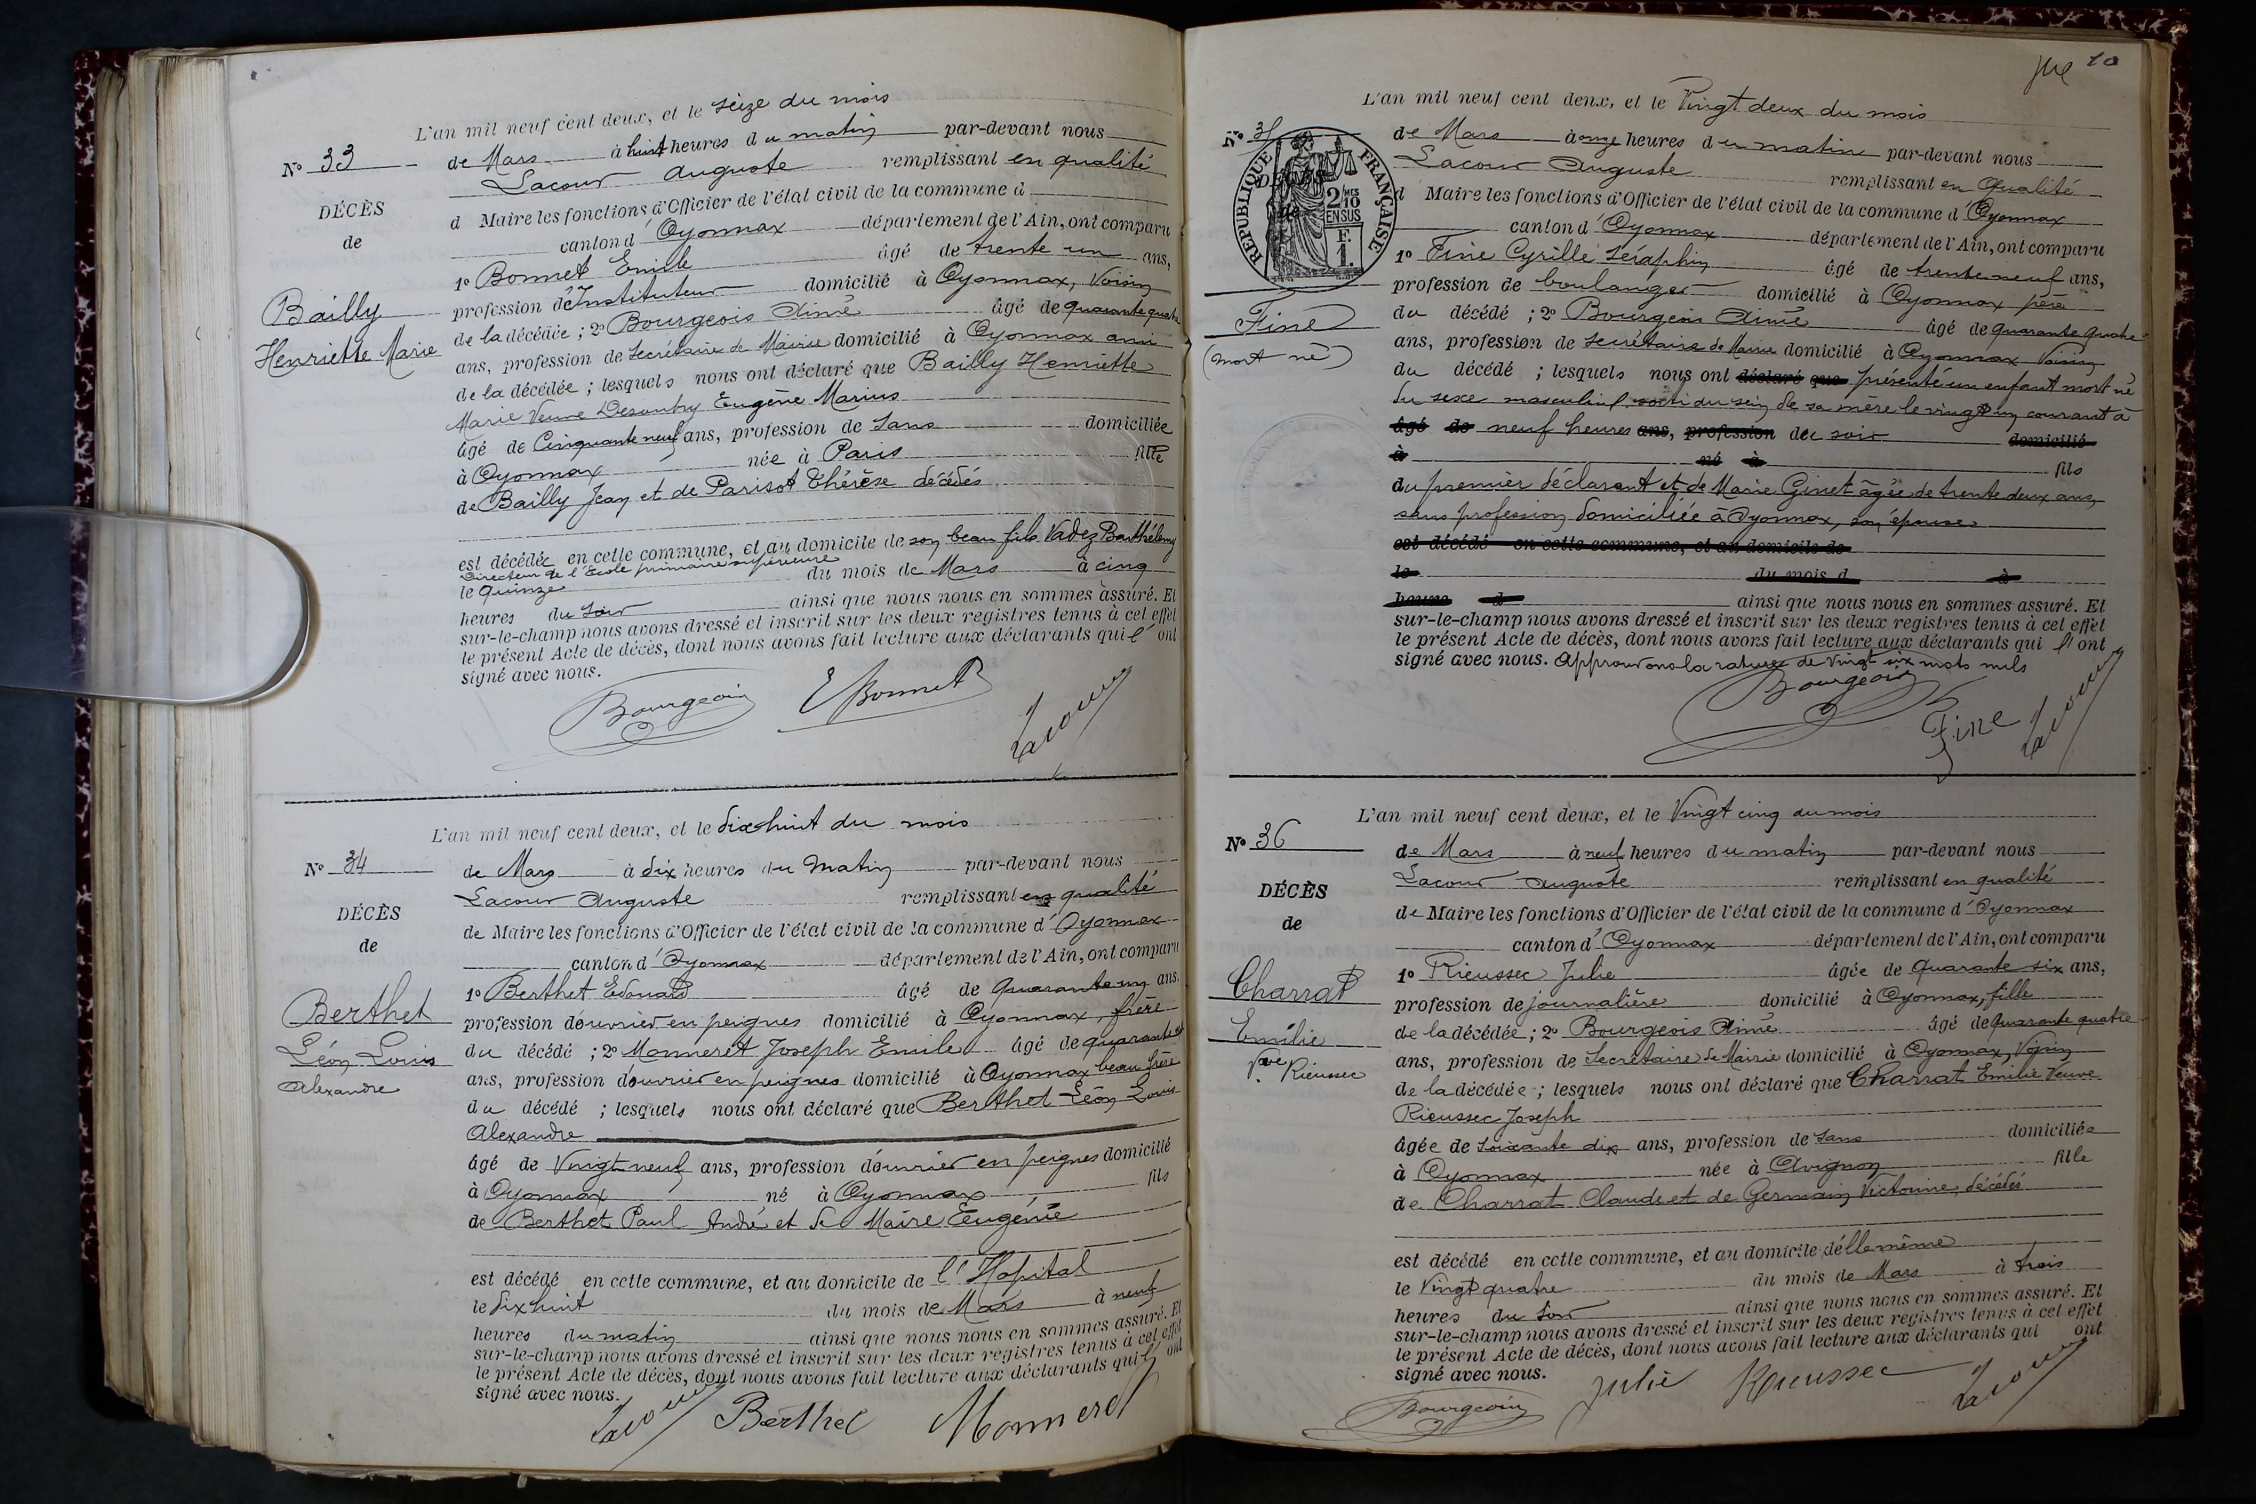 L'an mil neuf cent deux, et le seize du mois
N° 33
de Mars à huit heures du matin par-devant nous
Lacour Auguste remplissant en qualité
DÉCÈS
d Maire les fonctions d'Officier de l'état civil de la commune d
de
canton d'Oyonnax département de l'Ain, ont comparu
1° Bonnet Emile âgé de trente un ans,
profession d'Instituteur domicilié à Oyonnax, Voisin
Bailly
de la décédée ; 2° Bourgeois Aimé âgé de quarante quatre
Henriette Marie
ans, profession de Secrétaire de Mairie domicilié à Oyonnax ami
de la décédée ; lesquels nous ont déclaré que Bailly Henriette
Marie Veuve Eugène Marius
âgé de Cinquante neuf ans, profession de Sans domiciliée
à Oyonnax née à Paris fille
de Bailly Jean et de Parisot Thérèse décédés
est décédée en cette commune, et au domicile de son beau fils Vadez Barthélemy
Directeur de l'Ecole primaire supérieure
le quinze du mois de Mars à cinq
heures du soir ainsi que nous nous en sommes assuré. Et
sur-le-champ nous avons dressé et inscrit sur les deux registres tenus à cet effet
le présent Acte de décès, dont nous avons fait lecture aux déclarants qui l'ont
signé avec nous.
Bourgeois EBonnet Lacour
L'an mil neuf cent deux, et le dix huit du mois
N° 34
de Mars à dix heures du matin par-devant nous
Lacour Auguste remplissant en qualité
DÉCÈS
de Maire les fonctions d'Officier de l'état civil de la commune d'Oyonnax
de
canton d'Oyonnax département de l'Ain, ont comparu
1° Berthet Edouard âgé de quarante un ans.
Berthet
profession d'ouvrier en peignes domicilié à Oyonnax, frère
Léon Louis
du décédé ; 2° Monneret Joseph Emile âgé de quarante
Alexandre
ans, profession d'ouvrier en peignes domicilié à Oyonnax beau frère
du décédé ; lesquels nous ont déclaré que Berthet Léon Louis
Alexandre
âgé de Vingt neuf ans, profession d'ouvrier en peignes domicilié
à Oyonnax né à Oyonnax fils
de Berthet Paul André et de Maire Eugénie
est décédé en cette commune, et au domicile de l'Hopital
le dix huit du mois de Mars à neuf
heures du matin ainsi que nous nous en sommes assuré. Et
sur-le-champ nous avons dressé et inscrit sur les deux registres tenus à cet effet
le présent Acte de décès, dont nous avons fait lecture aux déclarants qui l'ont
signé avec nous.
Lacour Berthet Monneret
10
L'an mil neuf cent deux, et le Vingt deux du mois
N° 3
de Mars à onze heures du matin par-devant nous
Lacour Auguste remplissant en Qualité
RÉPUBLIQUE FRANÇAISE
2/10 EN SUS
F. 1.
DÉCÈS
d Maire les fonctions d'Officier de l'état civil de la commune d'Oyonnax
de
canton d'Oyonnax département de l'Ain, ont comparu
1° Fine Cyrille Séraphin âgé de trente neuf ans,
profession de boulanger domicilié à Oyonnax père
Fine
du décédé ; 2° Bourgeois Aimé âgé de quarante quatre
(mort né)
ans, profession de Secrétaire de Mairie domicilié à Oyonnax Voisin
du décédé ; lesquels nous ont déclaré que présenté un enfant mort né
du sexe masculin, sorti du sein de sa mère le vingt un courant à
âgé de neuf heures ans, profession du soir domicilié
à né à fils
du premier déclarant et de Marie Ginet âgée de trente deux ans,
sans profession domiciliée à Oyonnax, son épouse
est décédé en cette commune, et au domicile de
le du mois d à
heures d ainsi que nous nous en sommes assuré. Et
sur-le-champ nous avons dressé et inscrit sur les deux registres tenus à cet effet
le présent Acte de décès, dont nous avons fait lecture aux déclarants qui l'ont
signé avec nous. Approuvons la rature de vingt six mots nuls
Bourgeois Fine Lacour
L'an mil neuf cent deux, et le Vingt cinq du mois
N° 36
de Mars à neuf heures du matin par-devant nous
Lacour Auguste remplissant en qualité
DÉCÈS
de Maire les fonctions d'Officier de l'état civil de la commune d'Oyonnax
de
canton d'Oyonnax département de l'Ain, ont comparu
1° Rieussec Julie âgée de quarante six ans,
Charrat
profession de journalière domicilié à Oyonnax, fille
Emilie
de la décédée ; 2° Bourgeois Aimé âgé de quarante quatre
Vve Rieussec
ans, profession de Secrétaire de Mairie domicilié à Oyonnax, Voisin
de la décédée ; lesquels nous ont déclaré que Charrat Emilie Veuve
Rieussec Joseph
âgée de soixante dix ans, profession de sans domiciliée
à Oyonnax née à Avignon fille
de Charrat Claude et de Germain Victorine, décédés
est décédé en cette commune, et au domicile d'elle même
le Vingt quatre du mois de Mars à trois
heures du soir ainsi que nous nous en sommes assuré. Et
sur-le-champ nous avons dressé et inscrit sur les deux registres tenus à cet effet
le présent Acte de décès, dont nous avons fait lecture aux déclarants qui ont
signé avec nous.
Bourgeois Julie Rieussec Lacour